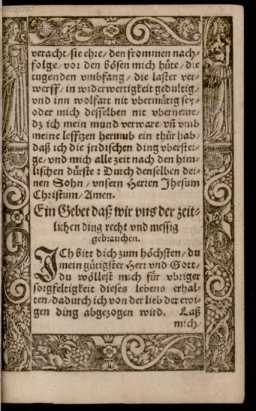 veracht/sie ehre/den frommen nach-
folge/vor den bösen mich hüte/die
tugenden vmbfang/die laster ver-
werff/in widerwertigkeit gedultig/
vnd inn wolfart nit vbermütig sey/
oder mich desselben nit vberneme/
dz ich mein mund verwar/vñ vmb
meine leffzen herumb ein thür hab/
daß ich die jrdischen ding vberstei-
ge/vnd mich alle zeit nach den him-
lischen dürste: Durch denselben dei-
nen Sohn/vnsern Herren Jhesum
Christum/Amen.
Ein Gebet daß wir vns der zeit-
lichen ding recht vnd messig
gebrauchen.
ICh bitt dich zum höchsten/du
mein gütigster Herr vnd Gott/
du wöllest mich für vbriger
sorgfeltigkeit dieses lebens erhal-
ten/dadurch ich von der lieb der ewi-
gen ding abgezogen wird. Laß
mich/